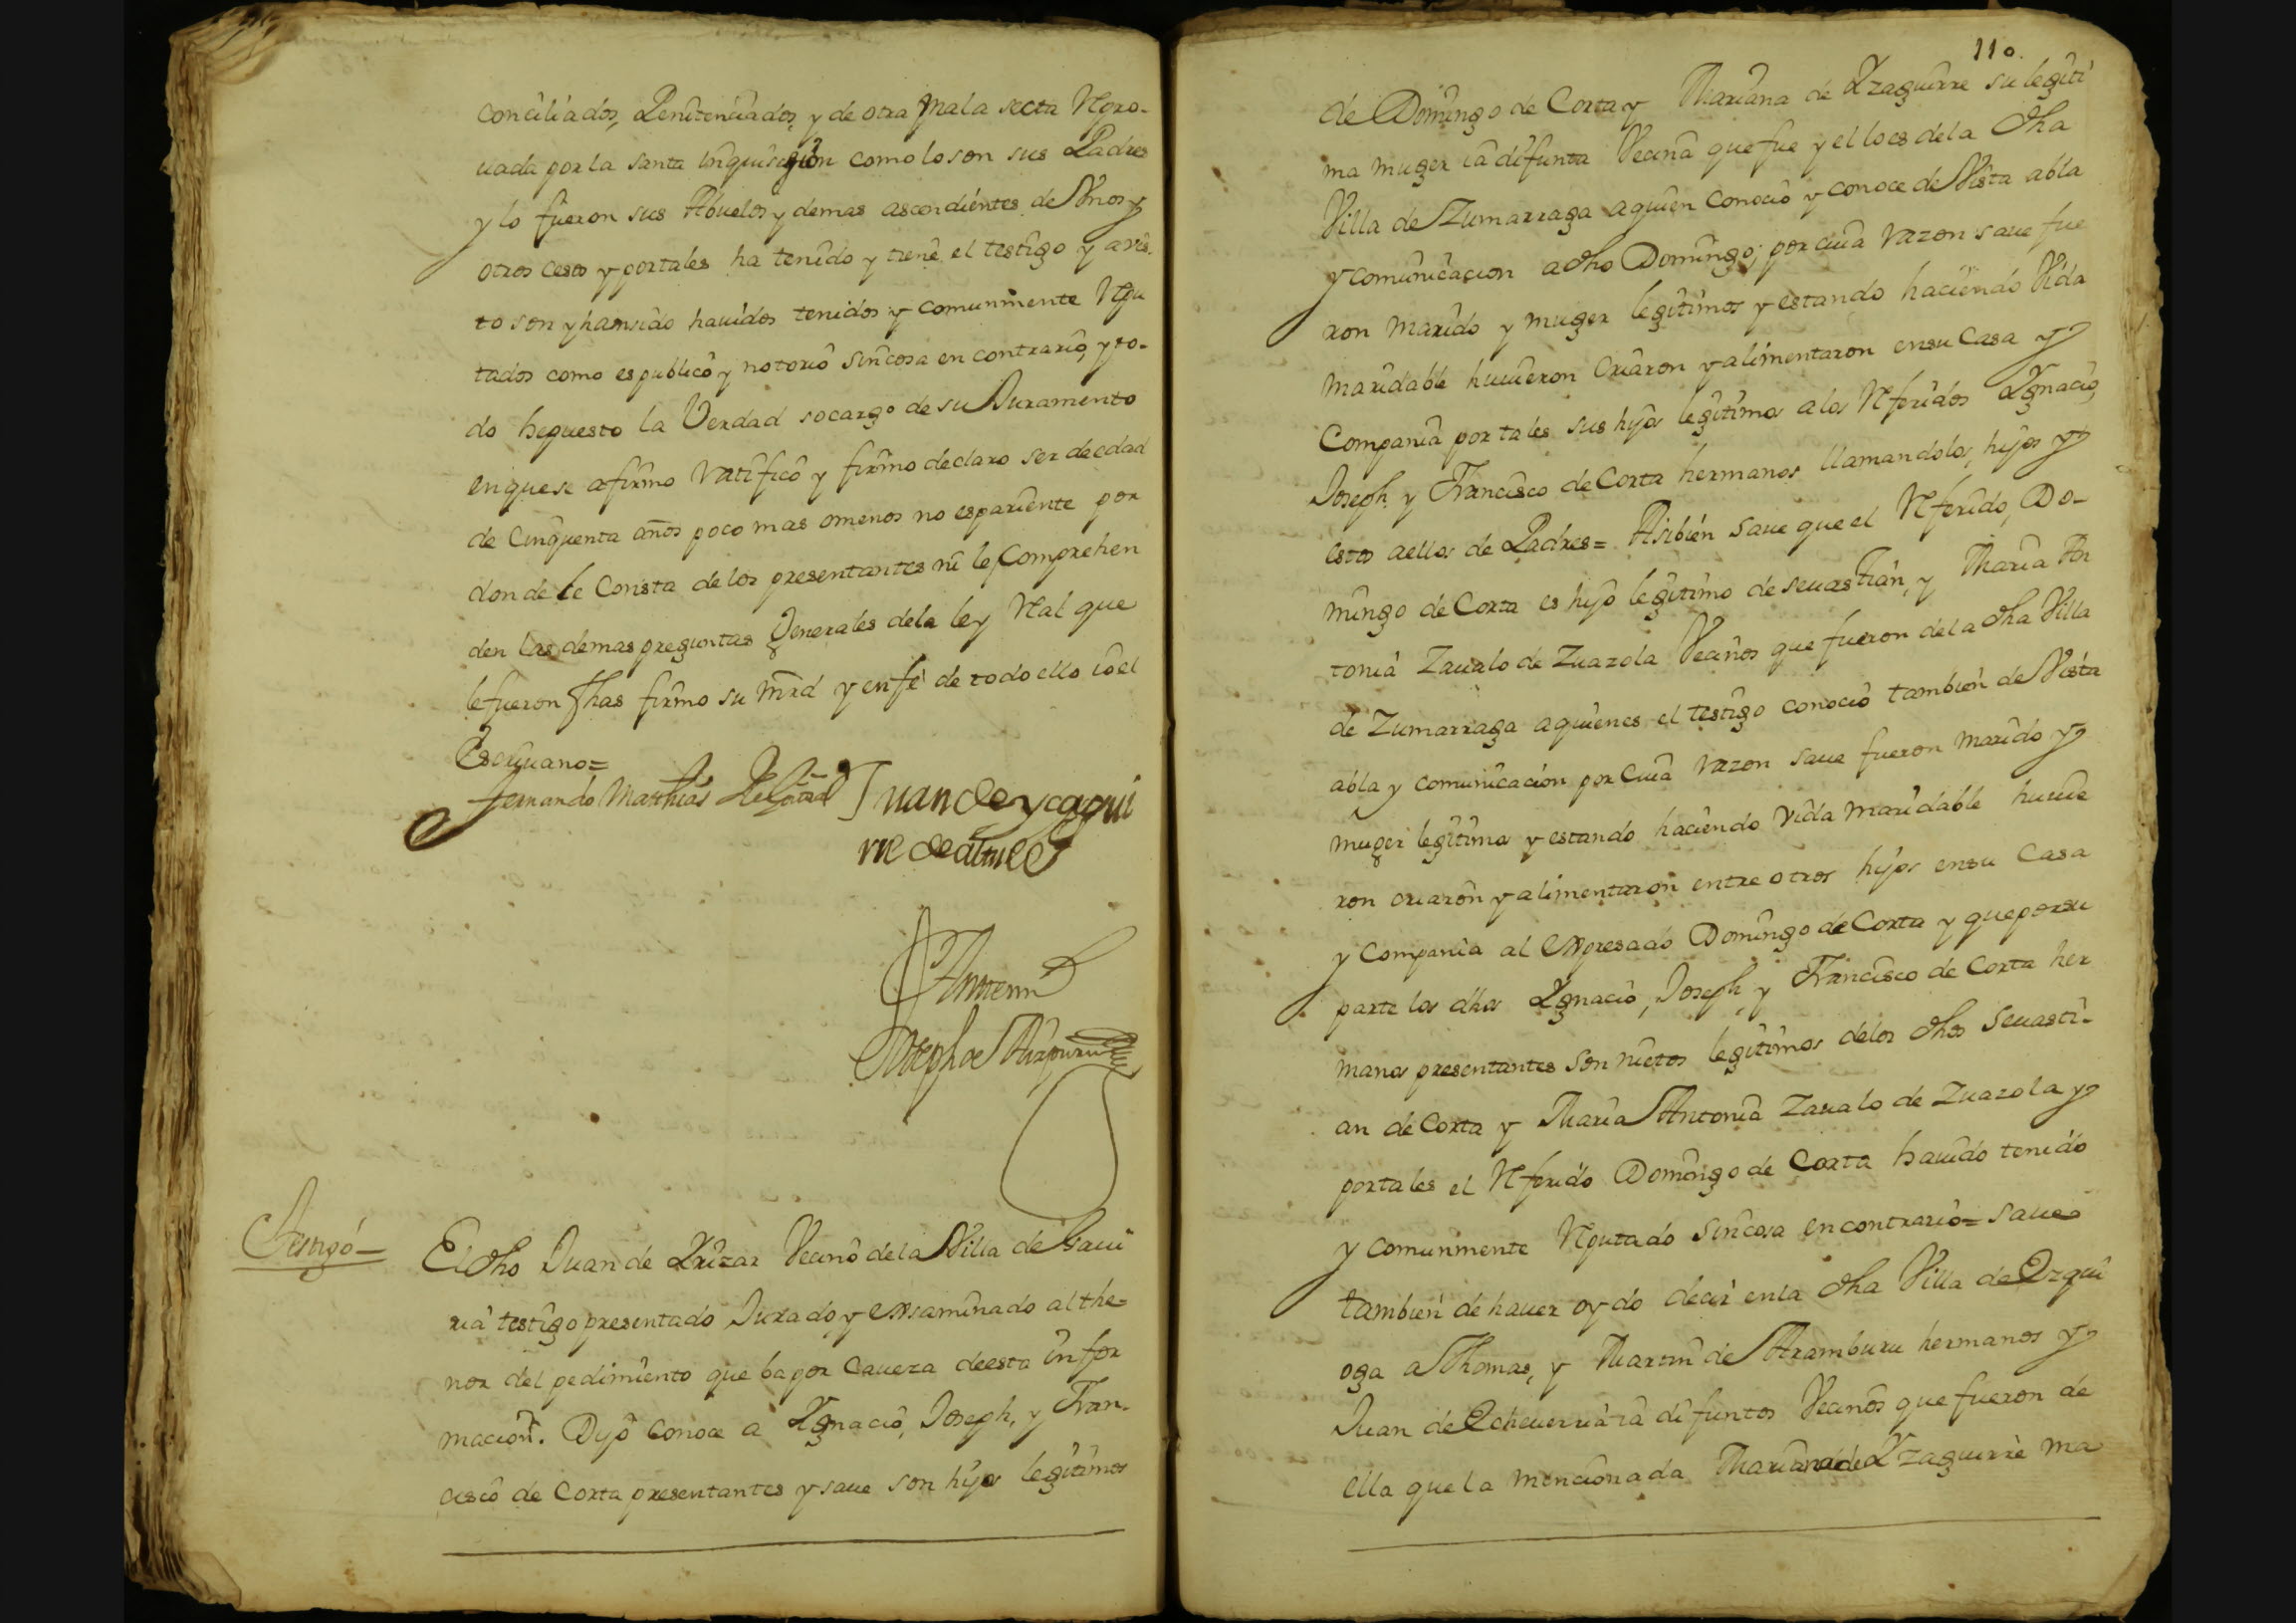 conciliados, Penitenciados, y de otra mala secta Repro-
uada por la santa inquisición como lo son sus Padres
y lo fueron sus Abuelos y demas ascendientes de Vnos y
otros cesto y portales ha tenido y tiene el testigo y avis
to son y han sido hauidos tenidos y comunmente Repu
tados como es publico y notorio sin cosa en contrario, y to-
do hepuesto la Verdad socargo de su Juramento
en que se afirmo ratifico y firmo declaro ser de edad
de Cinquenta años poco mas omenos no es pariente por
donde le Consta de los presentantes ni le Comprehen
den las demas preguntas Generales dela ley Real que
le fueron fhas firmo su mrd y en fé de todo ello io el
Escriuano=
Fernando Matthias
Juan de yçagui
rre de
Antemi
Joseph de Aizpuru
Testigo=
El dho Juan de Yrizar Vecino de la Villa de Gaui
ria testigo presentado Jurado y exsaminado al the-
nor del pedimiento que ba por Caueza deesta infor
macion. Dijo conoce a Ygnacio, Joseph, y Fran-
cisco de Corta presentantes y saue son hijos legitimos
110.
de Domingo de Corta y Mariana de Yzaguirre su legiti
ma muger ia difunta Vecina que fue y el lo es dela dha
Villa de Zumarraga aquien conocio y conoce de Vista abla
y comunicacion a dho Domingo; por cuia razon saue fue
ron Marido y muger legitimos y estando haciendo Vida
maridable huuieron Criaron y alimentaron ensu Casa y
Compania por tales sus hijos legitimos a los Referidos Ygnacio,
Joseph y Francisco de Corta hermanos llamandolos, hijos y
estos aellos de Padres= Asibien saue que el Referido, Do-
mingo de Corta es hijo legitimo de seuastian, y Maria An
tonia Zaualo de Zuazola Vecinos que fueron dela dha Villa
de Zumarraga aquienes el testigo conocio tambien de Vista
abla y comunicacion por Cuia razon saue fueron marido y
muger legitimos y estando haciendo Vida maridable huuie
ron criaron y alimentaron entre otros hijos ensu Casa
y Compania al expresado Domingo de Corta y que por su
parte los dhos Ygnacio, Joseph, y Francisco de Corta her
manos presentantes son nietos legitimos delos dhos Seuasti-
an de Corta y Maria Antonia Zaualo de Zuazola y
portales el Referido Domingo de Corta hauido tenido
y comunmente Reputado sin cosa en contrario= saue
tambien de hauer oydo decir enla dha Villa de Ezqui
oga a Thomas, y Martin de Aramburu hermanos y
Juan de Echeuerria ia difuntos Vecinos que fueron de
ella que la mencionada Mariana de Yzaguirre ma